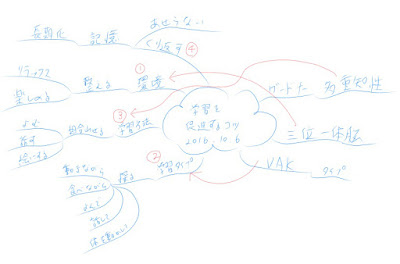 学習を
促進するコツ
2016.10.6
多重知性
ガードナー
三位一体脳
VAK
タイプ
② 学習タイプ
探る
動きながら
歩いて
体を動かし
③ 学習方法
組合せる
よむ
話す
① 環境
整える
リラックス
楽しめる
④ くり返す
あせらない
記憶
長期化